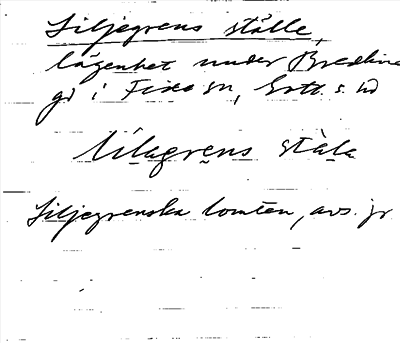 Liljegrens ställe,
lägenhet under Bredkins
gd i Fide sn, Gotl. s. hd
lilagrens ståla
Liljegrenska tomten, avs. jr